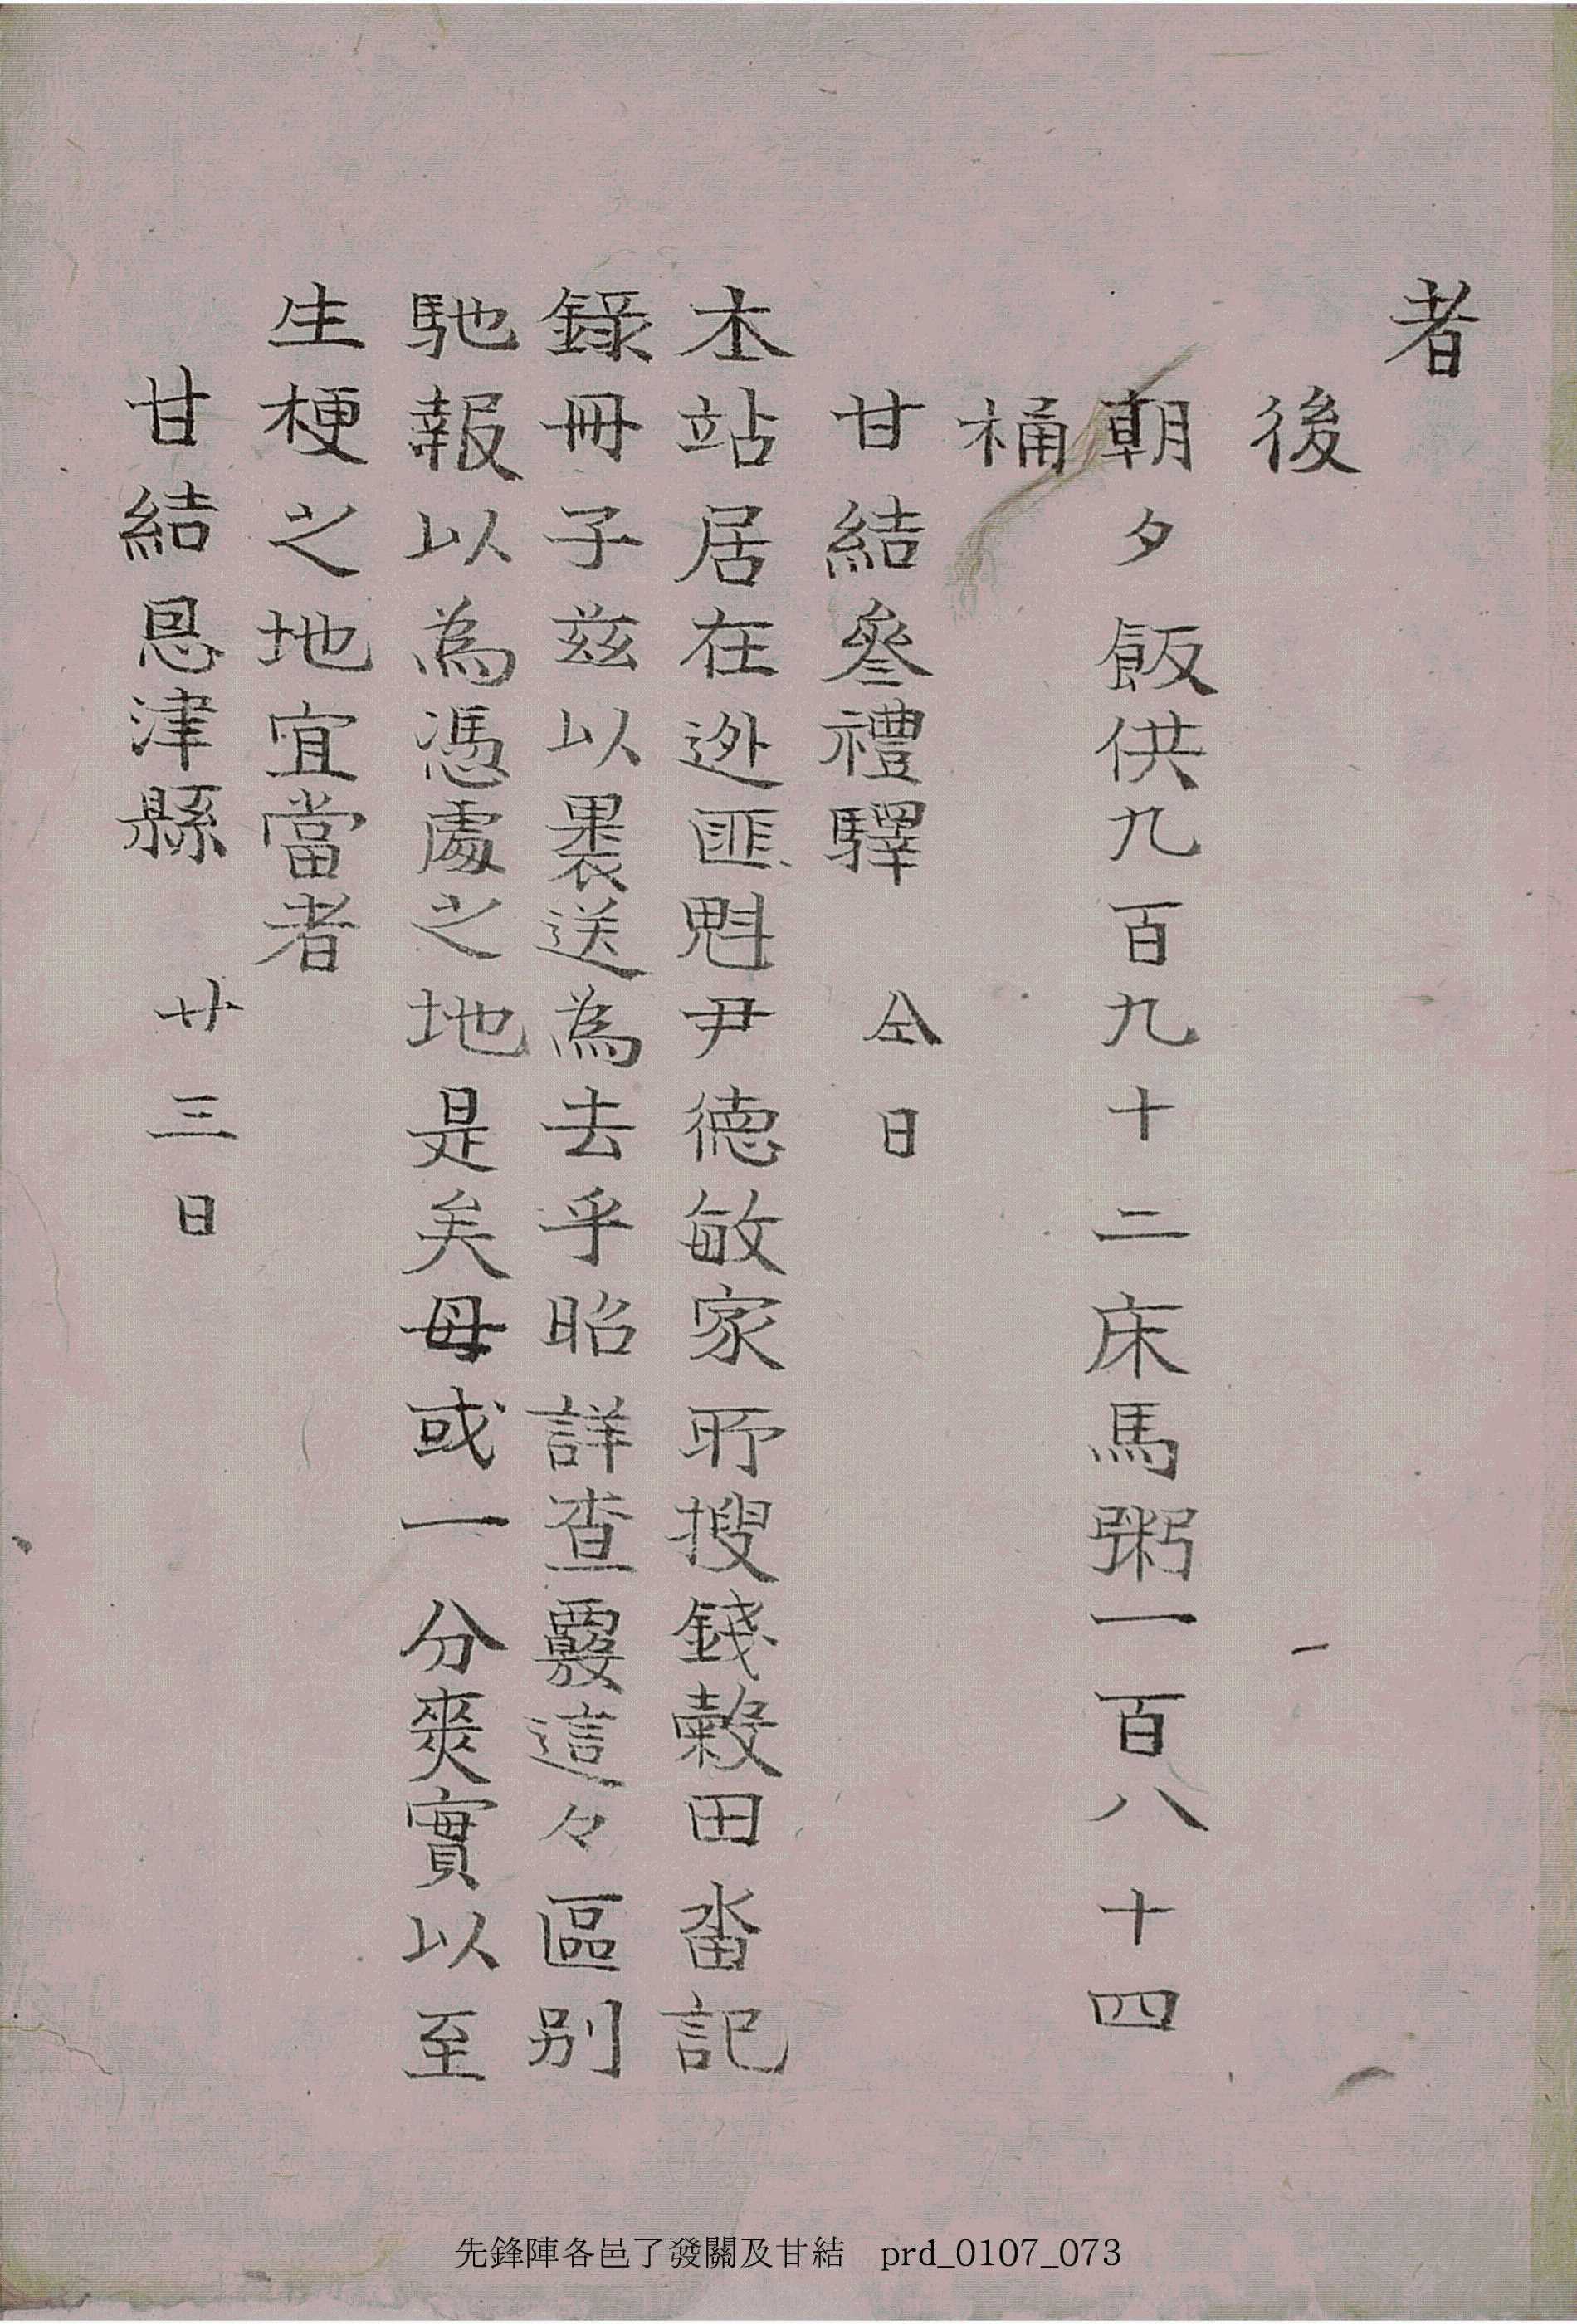 者
後
朝夕飯供九百九十二床馬粥一百八十四
桶
甘結參禮驛 仝日
本站居在逃匪魁尹德敏家所搜錢穀田畓記
錄冊子玆以裹送爲去乎昭詳查覈這々區別
馳報以爲憑處之地是矣毋或一分爽實以至
生梗之地宜當者
甘結恩津縣 廿三日
先鋒陣各邑了發關及甘結 prd_0107_073